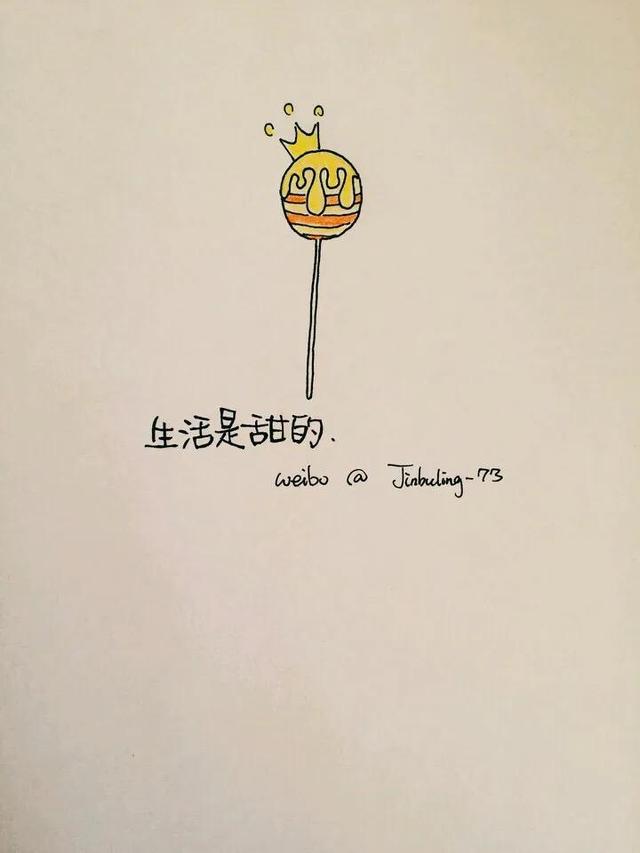 生活是甜的.
weibo @ Jinbuling-73